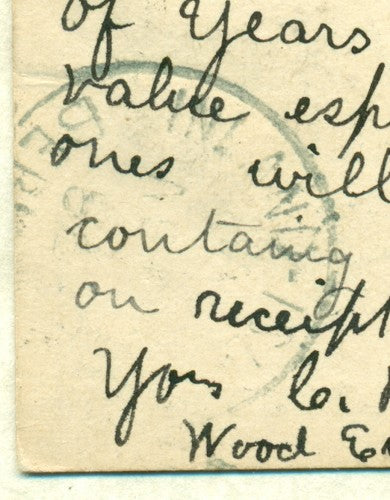 of Years
value esp
ones will
containg
on receipt
Yors C.
Wood